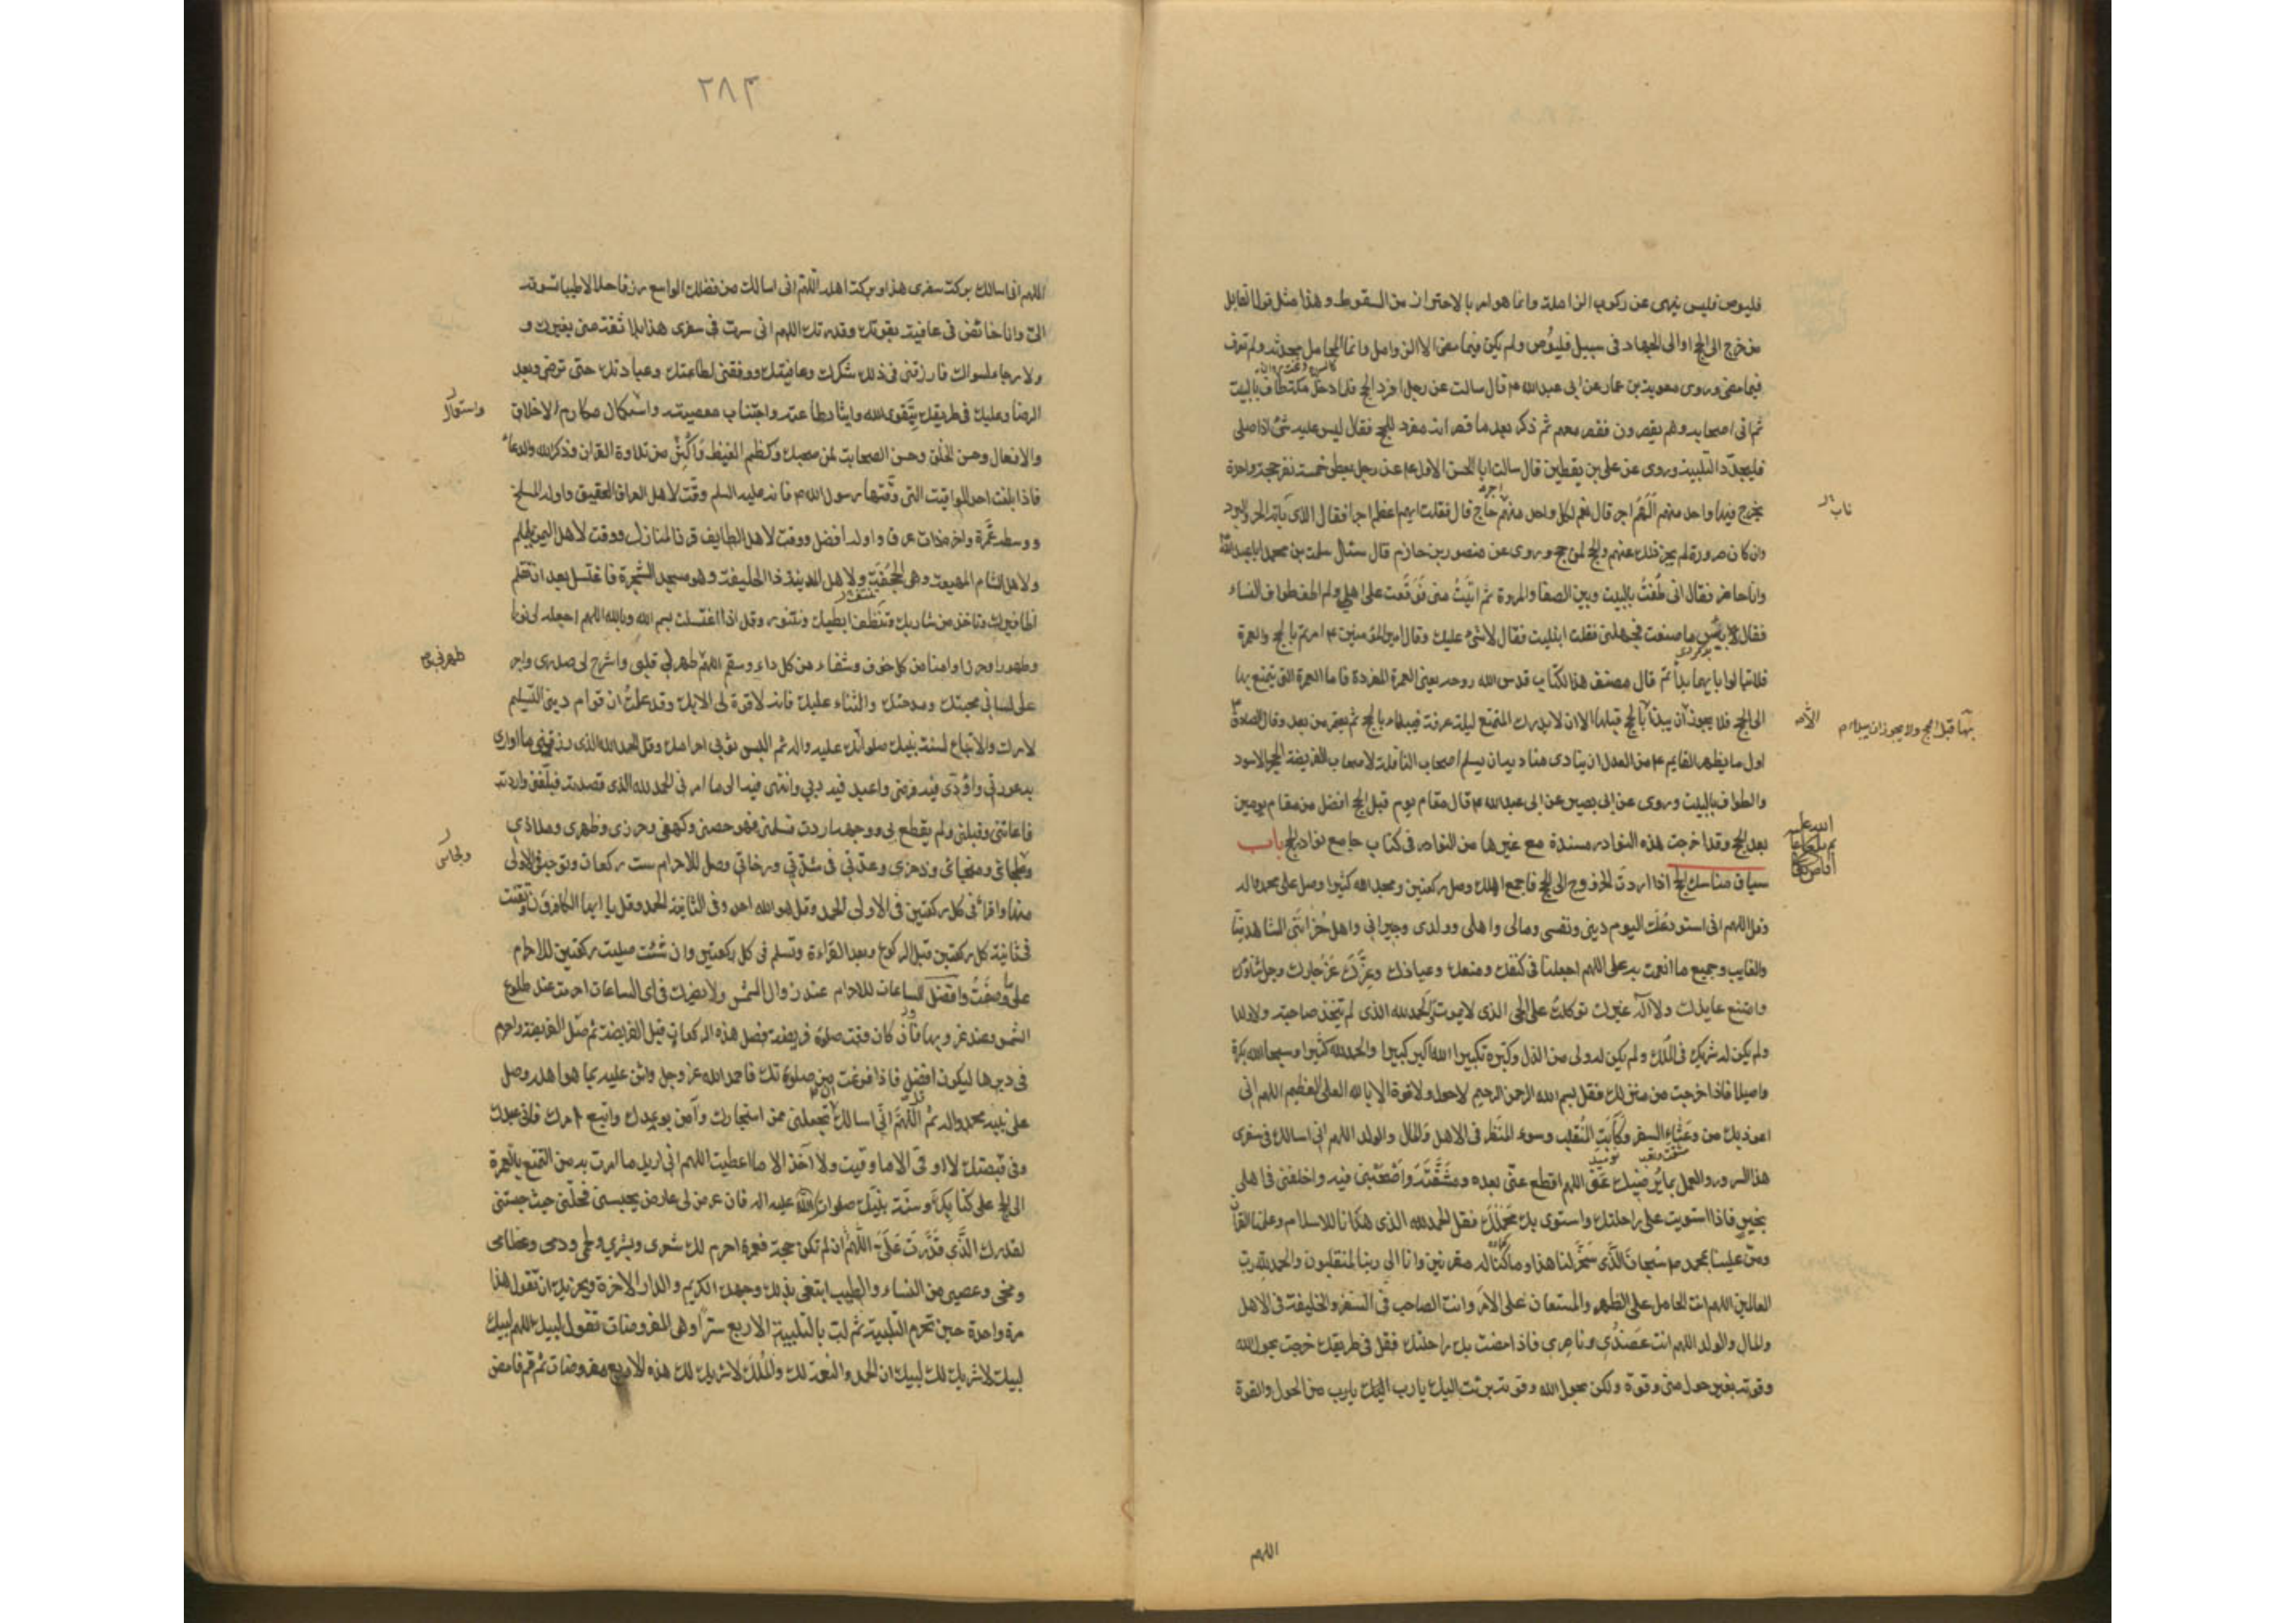 فليوص فليس ينهى عن ركوب الزاملة وانما هو امر بالاحتراز من السقوط وهذا مثل قول القايل
من خرج الى الحج او الى الجهاد فى سبيل فليوص ولم يكن فيما مضى الا الزوامل وانما المحامل محدثة ولم تعرف
فيما مضى وروى معوية بن عمار عن ابى عبد الله ع قال سالت عن رجل افرد الحج فلما دخل مكة طاف بالبيت
ثم اتى اصحابه وهم يقصرون فقصر معهم ثم ذكر بعد ما قصر انه مفرد للحج فقال ليس عليه شئ اذا صلى
فليجدد التلبية وروى عن على بن يقطين قال سالت ابا الحسن الاول ع عن رجل يعطى خمسة نفر حجة واحدة
يخرج فيها واحد منهم الهم اجر قال نعم لكل واحد منهم اجر حاج قال فقلت ايهم اعظم اجرا فقال الذى نابه الحر والبرد
وان كان صرورة لم يجز ذلك عنهم والحج لمن حج وروى عن منصور بن حازم قال سئال سلمة بن محمد ابا عبد الله
وانا حاضر فقال انى طفت بالبيت وبين الصفا والمروة ثم اتيت منى فوقعت على اهلى ولم اطف طواف النساء
فقال بئس ما صنعت فجهلنى فقلت ابتليت فقال لا شئ عليك وقال امير المؤمنين ع امرتم بالحج والعمرة
فلا تبالوا بايهما بدأتم قال مصنف هذا الكتاب قدس الله روحه يعنى العمرة المفردة فاما العمرة التى يتمتع بها
الى الحج فلا يجوز ان يبدأ بالحج قبلها الا ان لا يدرك المتمتع ليلة عرفة فيبداء بالحج ثم يعتمر من بعد وقال الصادق
اول ما يظهر القايم ع من العدل ان ينادى مناديه ان يسلم اصحاب النافلة لاصحاب الفريضة الحجر الاسود
والطواف بالبيت وروى عن ابى بصير عن ابى عبد الله ع قال مقام يوم قبل الحج افضل من مقام يومين
بعد الحج وقد اخرجت هذه النوادر مسندة مع غيرها من النوادر فى كتاب جامع نوادر الحج باب
سياق مناسك الحج اذا اردت الخروج الى الحج فاجمع اهلك وصل ركعتين ومجد الله كثيرا وصل على محمد واله
وقل اللهم انى استودعك اليوم دينى ونفسى ومالى واهلى وولدى وجيرانى واهل حزانتى الشاهد منا
والغايب وجميع ما انعمت به على اللهم اجعلنا فى كنفك ومنعك وعياذك وعزك عز جارك وجل ثناؤك
وامتنع عايذك ولا اله غيرك توكلت على الحى الذى لا يموت والحمد لله الذى لم يتخذ صاحبة ولا ولدا
ولم يكن له شريك فى الملك ولم يكن له ولى من الذل وكبره تكبيرا الله اكبر كبيرا والحمد لله كثيرا وسبحان الله بكرة
واصيلا فاذا خرجت من منزلك فقل بسم الله الرحمن الرحيم لا حول ولا قوة الا بالله العلى العظيم اللهم انى
اعوذ بك من وعثاء السفر وكآبة المنقلب وسوء المنظر فى الاهل والمال والولد اللهم انى اسالك فى سفرى
هذا السرور والعمل بما يرضيك عنى اللهم اقطع عنى بعده ومشقته واصحبنى فيه واخلفنى فى اهلى
بخير فاذا استويت على راحلتك واستوى بك محملك فقل الحمد لله الذى هدانا للاسلام وعلمنا القرآن
ومن علينا بمحمد ص سبحان الذى سخر لنا هذا وما كنا له مقرنين وانا الى ربنا لمنقلبون والحمد لله رب
العالمين اللهم انت الحامل على الظهر والمستعان على الامر وانت الصاحب فى السفر والخليفة فى الاهل
والمال والولد اللهم انت عضدى وناصرى فاذا مضت بك راحلتك فقل فى طريقك خرجت بحول الله
وقوته بغير حول منى وقوة ولكن بحول الله وقوته برئت اليك يا رب اليك يا رب من الحول والقوة
اللهم
ناب
بها قبل الحج ولا يجوز ان يبداء
٢٨٣
اللهم انى اسالك بركة سفرى هذا وبركة اهله اللهم انى اسالك من فضلك الواسع رزقا حلالا طيبا تسوقه
الى وانا خائض فى عافية بقوتك وقدرتك اللهم انى سرت فى سفرى هذا بلا ثقة منى بغيرك و
لا رجاء لسواك فارزقنى فى ذلك شكرك وعافيتك ووفقنى لطاعتك وعبادتك حتى ترضى وبعد
الرضا وعليك فى طريقك بتقوى الله وايثار طاعته واجتناب معصيته واستكمال مكارم الاخلاق
والافعال وحسن الخلق وحسن الصحابة لمن صحبك وكظم الغيظ واكثر من تلاوة القران وذكر الله والدعاء
فاذا بلغت احد المواقيت التى وقتها رسول الله ص فانه عليه السلم وقت لاهل العراق العقيق واوله المسلخ
ووسطه غمرة واخره ذات عرق واوله افضل ووقت لاهل الطايف قرن المنازل ووقت لاهل اليمن يلملم
ولاهل الشام المهيعة وهى الجحفة ولاهل المدينة ذا الحليفة وهو مسجد الشجرة فاغتسل بعد ان تقلم
اظافيرك وتاخذ من شاربك وتنظف ابطيك وتتنور وقل اذا اغتسلت بسم الله وبالله اللهم اجعله لى نورا
وطهورا وحرزا وامنا من كل خوف وشفاء من كل داء وسقم اللهم طهر لى قلبى واشرح لى صدرى واجر
على لسانى محبتك ومدحتك والثناء عليك فانه لا قوة لى الا بك وقد علمت ان قوام دينى التسليم
لامرك والاتباع لسنة نبيك صلواتك عليه واله ثم البس ثوبى احرامك وقل الحمد لله الذى رزقنى ما اوارى
به عورتى واؤدى فيه فرضى واعبد فيه ربى وانتهى فيه الى ما امرنى الحمد لله الذى قصدته فبلغنى واردته
فاعاننى وقبلنى ولم يقطع بى ووجهه اردت فسلمنى فهو حصنى وكهفى وحرزى وظهرى وملاذى
وملجائى ومنجائى وذخرى وعدتى فى شدتى ورخائى وصل للاحرام ست ركعات وتوجه فى الاولى
منها واقرأ فى كل ركعتين فى الاولى الحمد وقل هو الله احد وفى الثانية الحمد وقل يا ايها الكافرون وتقنت
فى ثانية كل ركعتين قبل الركوع وبعد القراءة وتسلم فى كل ركعتين وان شئت صليت ركعتين للاحرام
على ما وصفت وافضل الساعات للاحرام عند زوال الشمس ولا يضرك فى اى الساعات احرمت عند طلوع
الشمس وعند غروبها فان كان وقت صلوة فريضة فصل هذه الركعات قبل الفريضة ثم صل الفريضة واحرم
فى دبرها ليكون افضل فاذا فرغت من صلوتك فاحمد الله عز وجل واثن عليه بما هو اهله وصل
على نبيه محمد واله ثم اللهم انى اسالك ان تجعلنى ممن استجار لك وآمن بوعدك واتبع امرك فانى عبدك
وفى قبضتك لا اوقى الا ما وقيت ولا آخذ الا ما اعطيت اللهم انى اريد ما امرت به من التمتع بالعمرة
الى الحج على كتابك وسنة نبيك صلوات الله عليه واله فان عرض لى عارض يحبسنى فحلنى حيث حبستنى
لقدرك الذى قدرت على اللهم ان لم تكن حجة فعمرة احرم لك شعرى وبشرى ولحمى ودمى وعظامى
ومخى وعصبى من النساء والطيب ابتغى بذلك وجهك الكريم والدار الاخرة ويجزيك ان تقول هذا
مرة واحدة حين تحرم التلبية ثم لب بالتلبية الاربع سرا وهى المفروضات تقول لبيك اللهم لبيك
لبيك لا شريك لك لبيك ان الحمد والنعمة لك والملك لا شريك لك هذه الاربع مفروضات ثم قم فامض